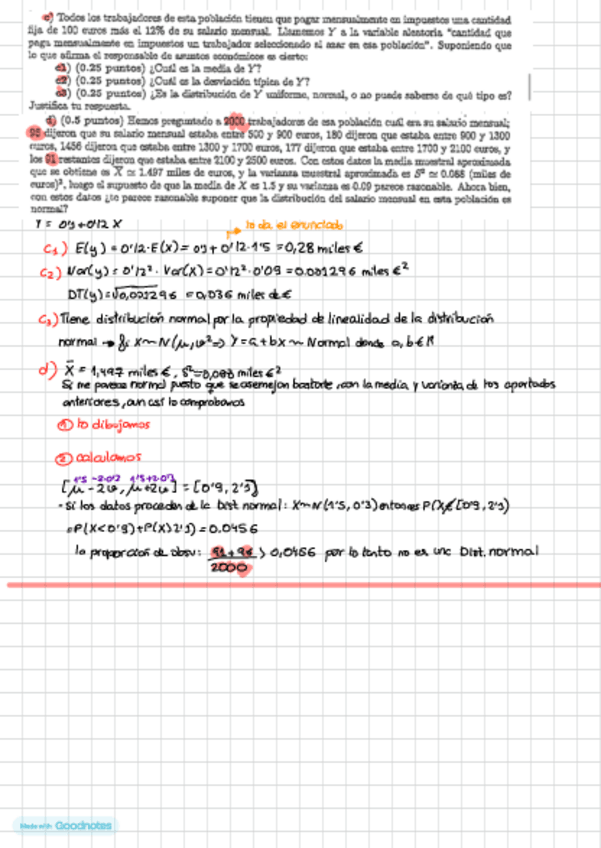 c) Todos los trabajadores de esta población tienen que pagar mensualmente en impuestos una cantidad
fija de 100 euros más el 12% de su salario mensual. Llamemos Y a la variable aleatoria "cantidad que
paga mensualmente en impuestos un trabajador seleccionado al azar en esa población". Suponiendo que
lo que afirma el responsable de asuntos económicos es cierto:
c1) (0.25 puntos) ¿Cuál es la media de Y?
c2) (0.25 puntos) ¿Cuál es la desviación típica de Y?
c3) (0.25 puntos) ¿Es la distribución de Y uniforme, normal, o no puede saberse de qué tipo es?
Justifica tu respuesta.
d) (0.5 puntos) Hemos preguntado a 2000 trabajadores de esa población cuál era su salario mensual;
96 dijeron que su salario mensual estaba entre 500 y 900 euros, 180 dijeron que estaba entre 900 y 1300
euros, 1456 dijeron que estaba entre 1300 y 1700 euros, 177 dijeron que estaba entre 1700 y 2100 euros, y
los 91 restantes dijeron que estaba entre 2100 y 2500 euros. Con estos datos la media muestral aproximada
que se obtiene es X ≃ 1.497 miles de euros, y la varianza muestral aproximada es S² ≃ 0.088 (miles de
euros)², luego el supuesto de que la media de X es 1.5 y su varianza es 0.09 parece razonable. Ahora bien,
con estos datos ¿te parece razonable suponer que la distribución del salario mensual en esta población es
normal?
Y = 0'1+0'12 X
lo da el enunciado
c1) E(y) = 0'12·E(X) = 0'1 + 0'12·1'5 = 0,28 miles €
c2) Var(y) = 0'12² · Var(X) = 0'12² · 0'09 = 0.001296 miles €²
DT(y) = √0,001296 = 0,036 miles de €
c3) Tiene distribución normal por la propiedad de linealidad de la distribución
normal → Si X~N(μ,σ²) ⇒ Y = a + bx ~ Normal donde a, b ∈ R
d) X̄ = 1,497 miles €, S² = 0,088 miles €²
Si me parece normal puesto que se asemejan bastante con la media y varianza de los apartados
anteriores, aun así lo comprobamos
① lo dibujamos
② calculamos
1'5 -2·0'3 1'5+2·0'3
[μ - 2σ, μ + 2σ] = [0'9, 2'1]
- Si los datos proceden de la Dist normal: X~N(1'5, 0'3) entonces P(X∉[0'9, 2'1])
= P(X<0'9)+P(X>2'1) = 0.0456
la proporción de obsv: 91+96 > 0,0456 por lo tanto no es una Dist. normal
2000
Made with Goodnotes